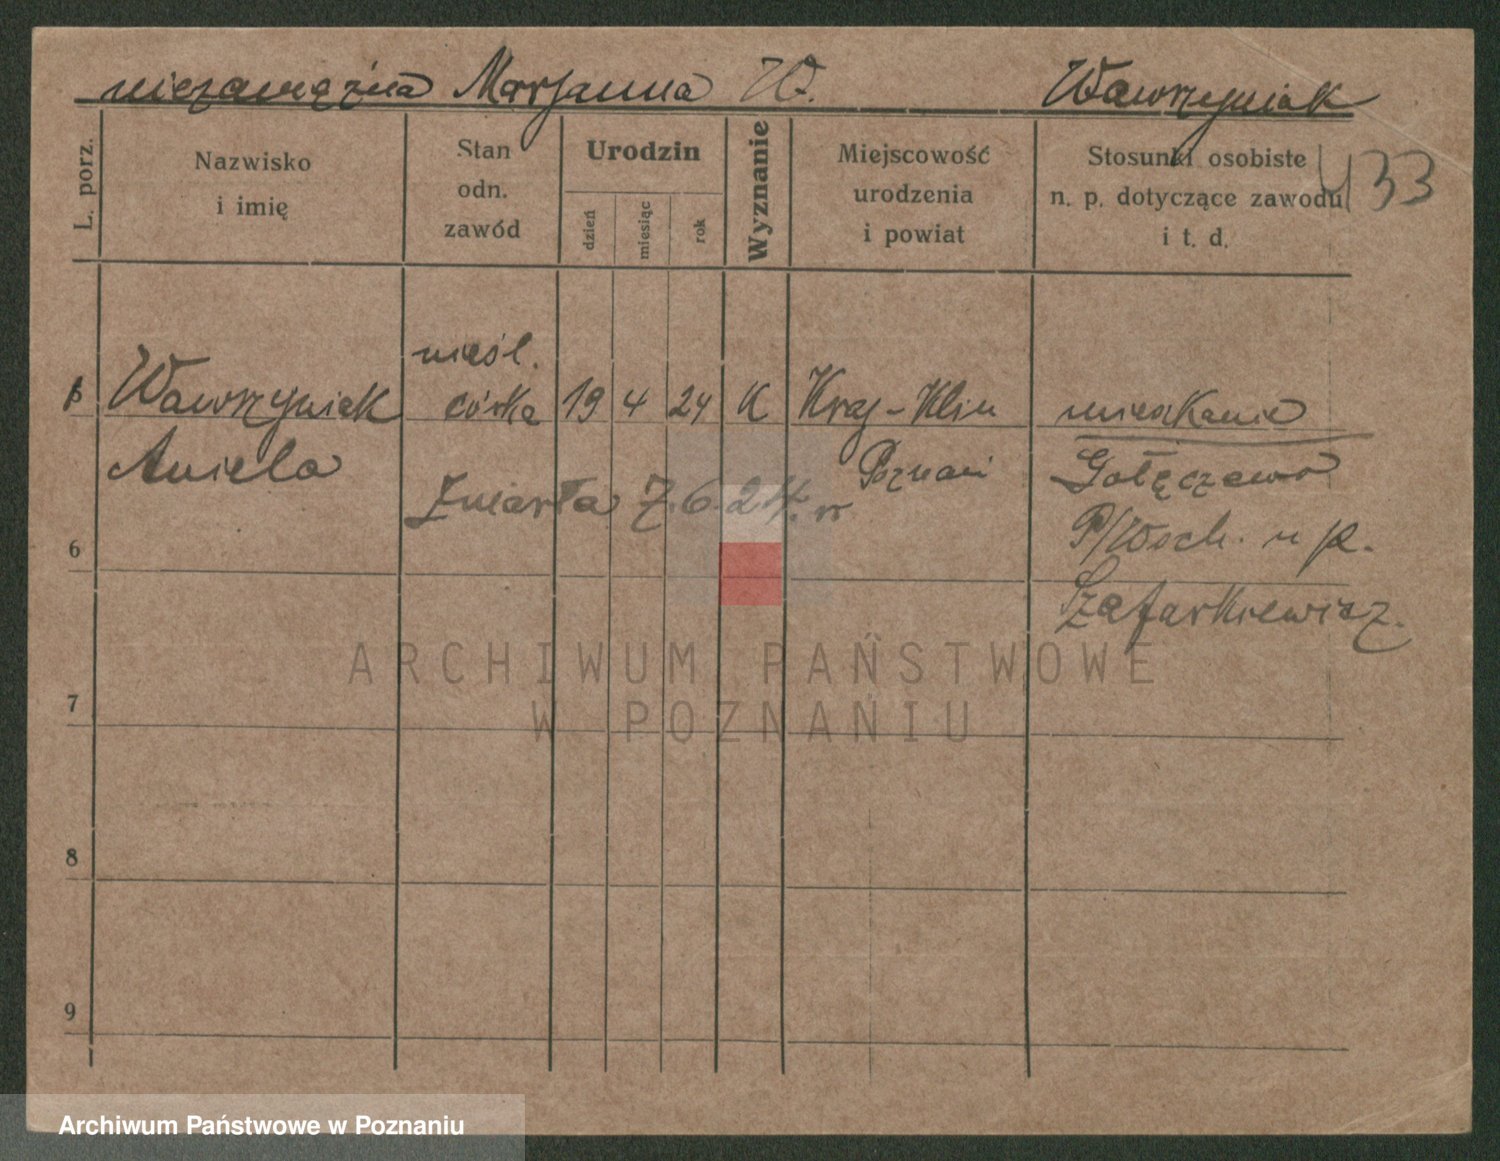 niezamężna Marjanna W. Wawrzyniak
433
L. porz.
Nazwisko
i imię
Stan
odn.
zawód
Urodzin
dzień
miesiąc
rok
Wyznanie
Miejscowość
urodzenia
i powiat
Stosunki osobiste
n. p. dotyczące zawodu
i t. d.
nieśl.
Wawrzyniak córka 19 4 24 K Kraj-Klin mieszkanie
Aniela Poznań Gołęczewo
Zmarła 7.6.24. r
P/Woch. u p.
Szafarkiewicz.
6
7
8
9
ARCHIWUM PAŃSTWOWE
W POZNANIU
Archiwum Państwowe w Poznaniu